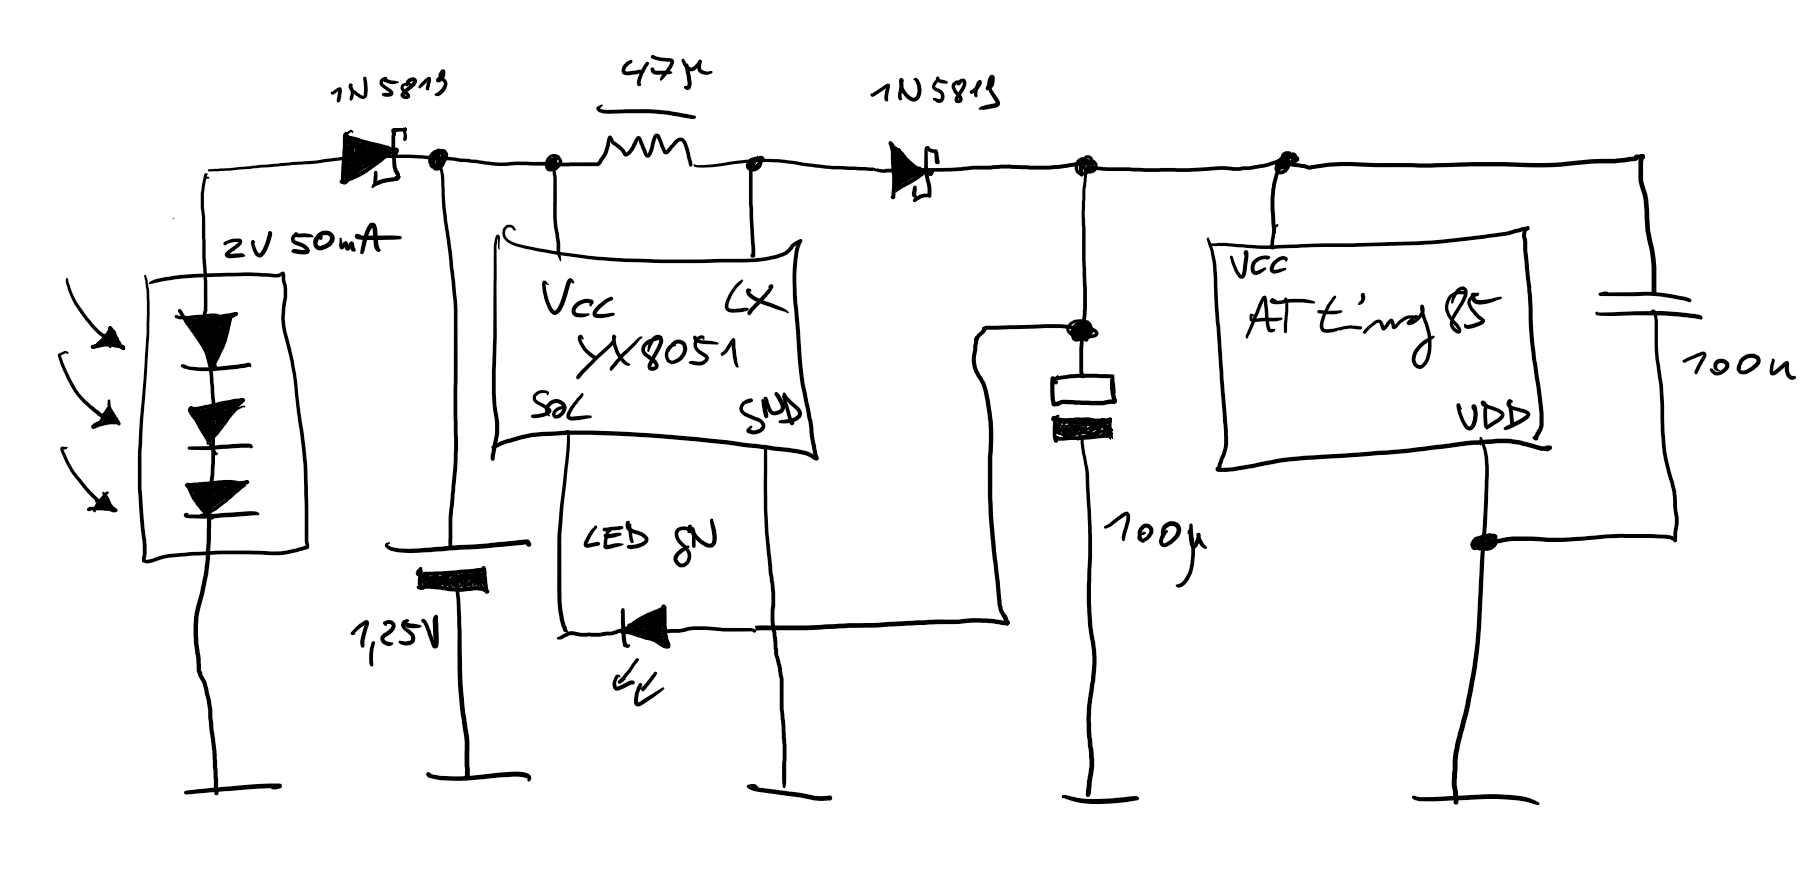 1N5819
47µ
1N5819
2V 50mA
VCC
LX
YX8051
SOL
GND
VCC
ATtiny85
VDD
100n
LED gN
100µ
1,25V